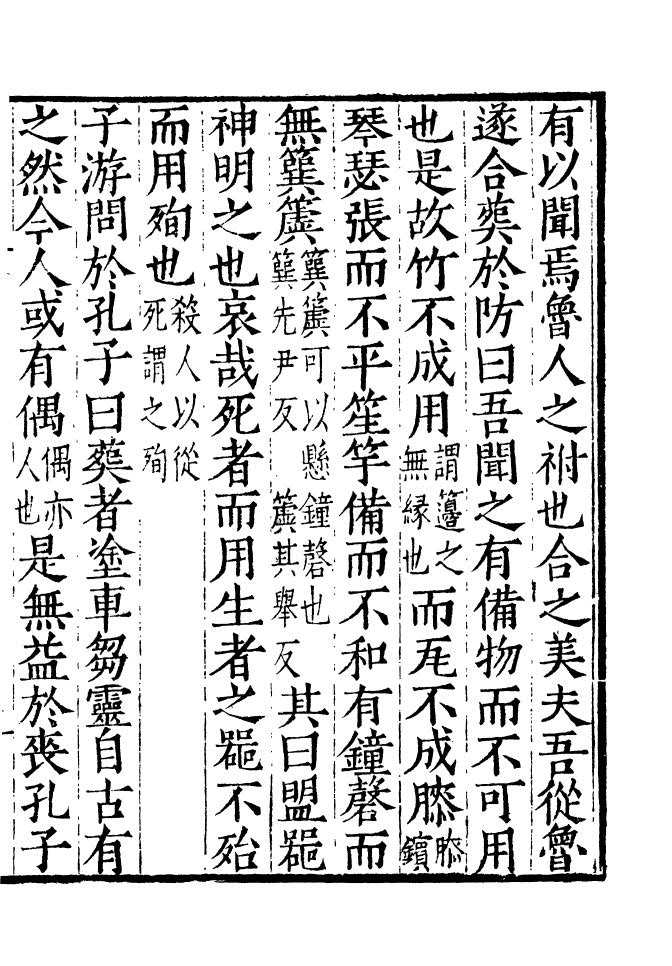 有以聞焉魯人之祔也合之美夫吾從魯
遂合葬於防曰吾聞之有備物而不可用
也是故竹不成用謂籩之無縁也而瓦不成膝膝鑟
琴瑟張而不平笙竽備而不和有鐘磬而
無簨簴簨簴可以懸鐘磬也簨先尹反簴其舉反其曰盟噐
神明之也哀哉死者而用生者之噐不殆
而用殉也殺人以從死謂之殉
子游問於孔子曰葬者塗車芻靈自古有
之然今人或有偶偶亦人也是無益於喪孔子